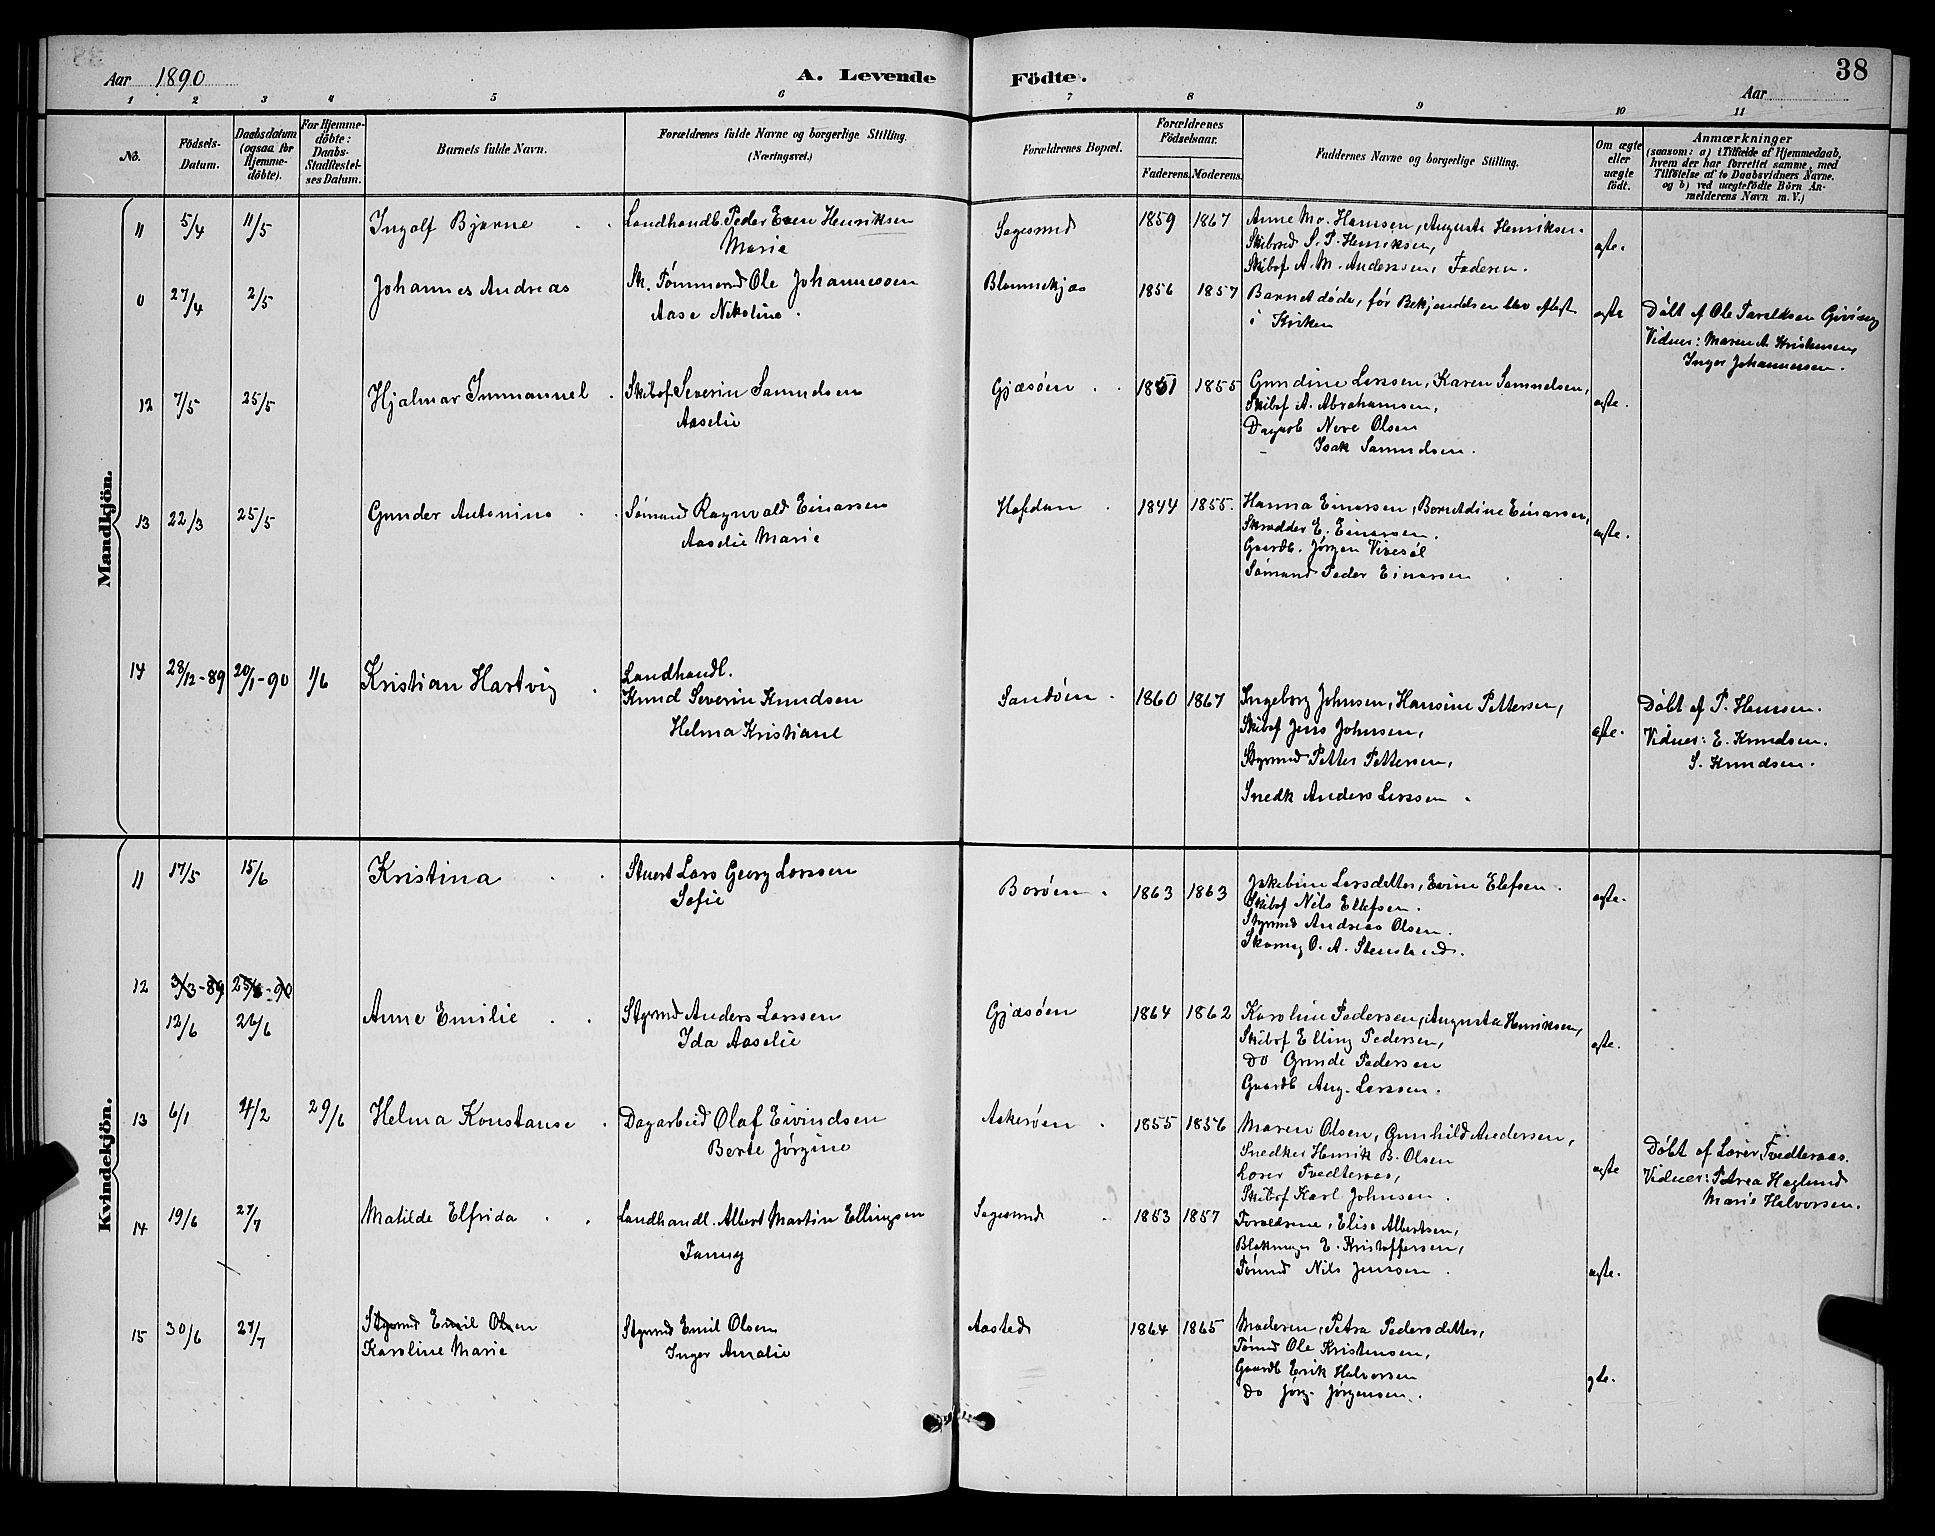 Aar 1890 A. Levende Födte. 38
Aar
1 2 3 4 5 6 7 8 9 10 11
No.
Födsels-Datum.
Daabsdatum (ogsaa for Hjemme-döbte).
For Hjemme-döbte: Daabs-Stadfestel-ses Datum.
Barnets fulde Navn.
Forældrenes fulde Navne og borgerlige Stilling. (Næringsvei.)
Forældrenes Bopæl.
Forældrenes Födselsaar.
Faderens. Moderens.
Faddernes Navne og borgerlige Stilling.
Om ægte eller uægte födt.
Anmærkninger
(saasom: a) i Tilfælde af Hjemmedaab, hvem der har forrettet samme, med Tilföielse af to Daabsvidners Navne. og b) ved uægtefödte Börn An-melderens Navn m. V.)
Mandkjön.
11 5/4 11/5 Ingolf Bjarne Landhandl. Peder Even Henriksen Sagesund 1859 1867 Anne Mo. Hansen, Augusta Henriksen.
Marie Skibsred S. P. Henriksen, ægte.
Skibsf A. M. Anderssen, Faderen.
0 27/4 2/5 Johannes Andreas Sk. Tømmermd Ole Johannessen 1856 1857 Barnet døde, før Bekjendelsen blev aflagt ægte Döbt af Ole Tareldsen
Aase Nikoline. i Kirken Vidner: Maren A. Kristensen,
Inger Johannessen.
12 7/5 25/5 Hjalmar Immanuel Skibsf Severin Samuelsen Gjæsøen 1851 1855 Gundine Larssen, Karen Samuelsen,
Aaselie Skibsf A. Abrahamsen, ægte.
Dagarb Olsen
Isak Samuelsen.
13 22/3 25/5 Gunder Antonius Sømand Ragnvald Einarsen 1844 1855. Hanna Einarsen, Berntdine Einarsen,
Aaselie Marie Skrædder E. Einarsen. ægte.
Gaardb. Jørgen
Sømand Peder Einarsen
14 28/12-89 20/1-90 1/6 Kristian Hartvig Landhandl.
Knud Severin Knudsen Sandøen 1860 1867 Ingeborg Johnsen, Hansine Pettersen, Döbt af P. Hansen.
Helma Kristiane Skibsf Jens Johnsen, ægte. Vidner: E. Knudsen.
Styrmd Petter Pettersen, S. Knudsen.
Snedk Anders Larssen.
Kvindekjön.
11 17/5 15/6 Kristina Stuert Lars Georg Larssen Borøen 1863 1863 Jakobine Larsdatter, Evine Elefsen.
Sofie Skibsf Nils Ellefsen. ægte.
Styrmd Andreas Olsen.
Skomag O. A. Stensland.
12 3/3-89 25/6-90
12/6 26/6 Anne Emilie Styrmd Anders Larssen Gjæsøen 1864 1862 Karoline Pedersen, Augusta Henriksen,
Ida Aaselie Skibsf Elling Pedersen, ægte.
Do Gunde Pedersen
Gaardb Aug. Larssen.
13 6/1 4/2 29/6 Helma Konstanse Dagarbeid Olaf Eivindsen Askerøen 1855 1856 Maren Olsen, Gunhild Andersen,
Berte Jørgine Snedker Henrik B. Olsen Döbt af Lærer Tvedteraas.
Lærer Tvedteraas, ægte Vidner: Petrea Haglund
Skibsf Karl Johnsen. Marie Halvorsen.
14 19/6 27/7 Matilde Elfrida Landhandl. Albert Martin Ellingsen Sagesund 1853 1857 Forældrene, Elise Albertsen,
Fanny Blokmager E. Kristoffersen,
Tømmd Nils Jenssen. ægte.
15 30/6 27/7 Styrmd Emil Olsen Styrmd Emil Olsen Aasted 1864 1865 Moderen, Petra Pedersdatter,
Karoline Marie Inger Amalie Tømmd Ole Kristensen,
Gaardb Erik Halvorsen gte.
Do Jørg. Jørgensen.